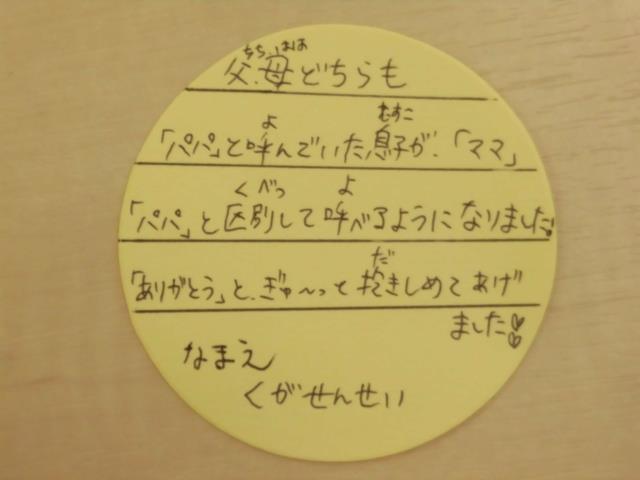 ちち はは
父、母どちらも
よ むすこ
「パパ」と呼んでいた息子が、「ママ」
くべつ よ
「パパ」と区別して呼べるようになりました!
だ
「ありがとう」と、ぎゅ〜って抱きしめてあげ
ました♡♡
なまえ
くがせんせい